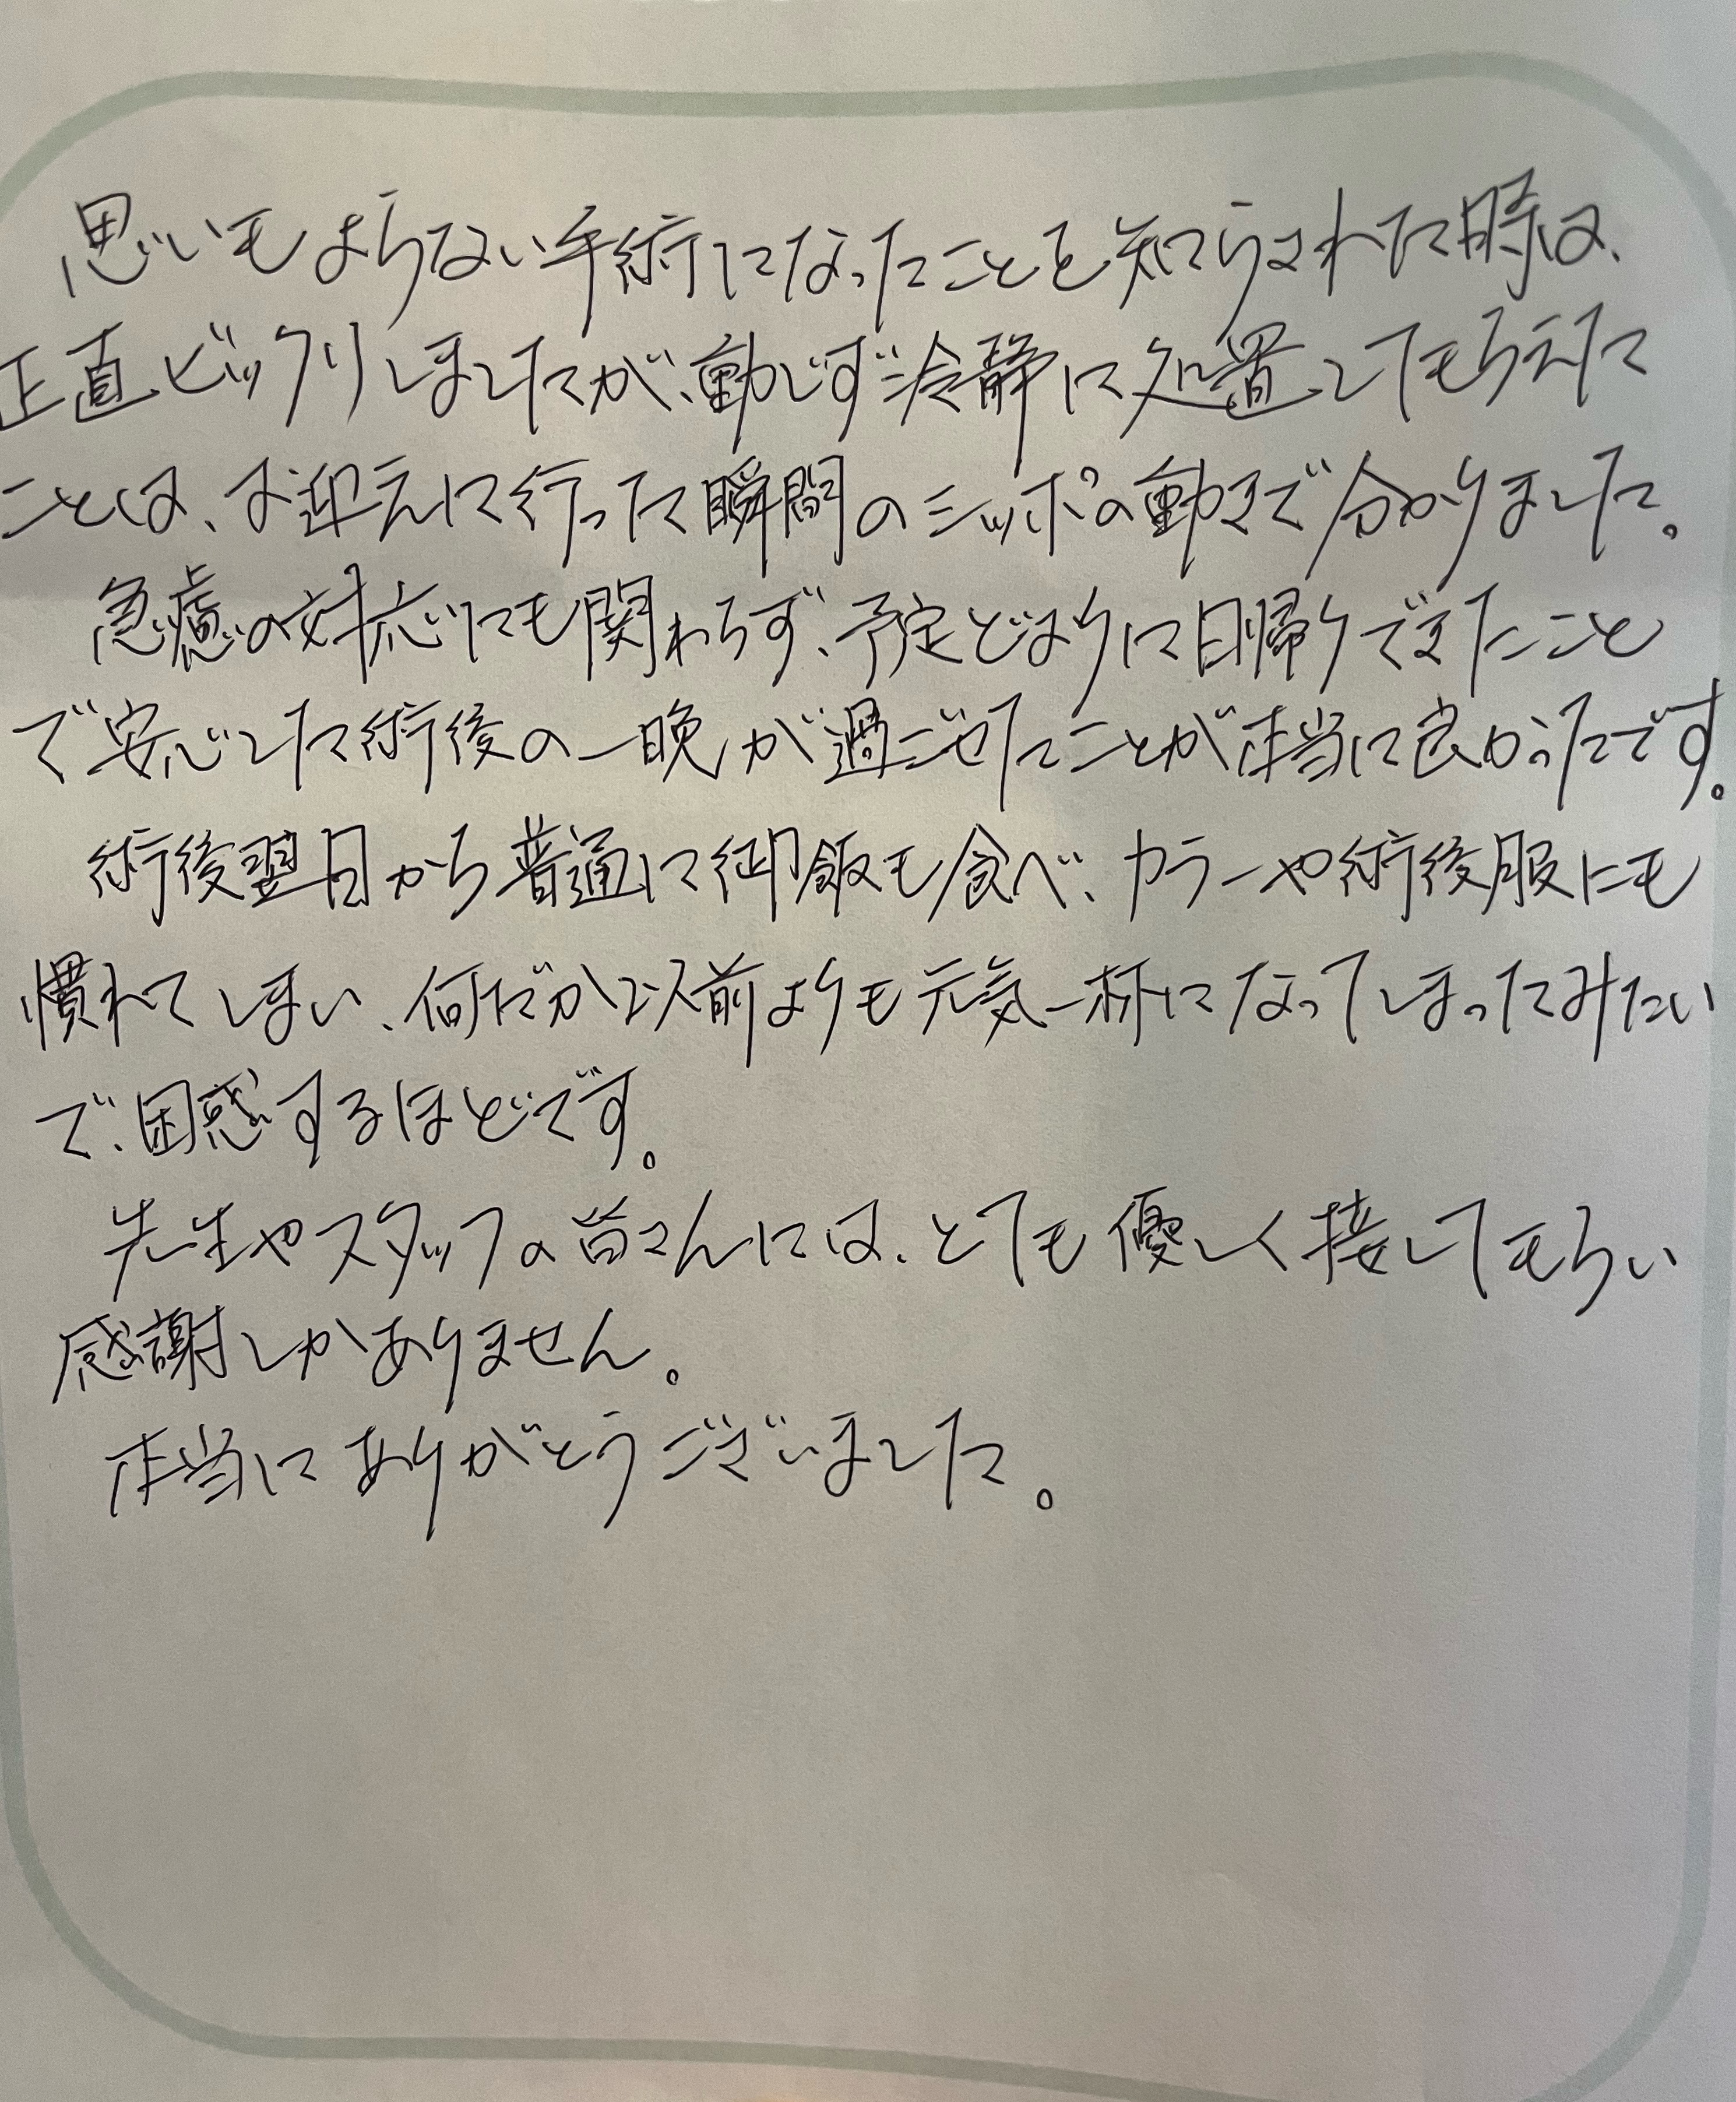 思いもよらない手術になったことを知らされた時は、
正直ビックリしましたが、動じず冷静に処置してもらえた
ことは、お迎えに行った瞬間のシッポの動きで分かりました。
急慮の対応にも関わらず、予定どおりに日帰りできたこと
で安心した術後の一晩が過ごせたことが本当に良かったです。
術後翌日から普通に御飯も食べ、カラーや術後服にも
慣れてしまい、何だか以前よりも元気一杯になってしまったみたい
で、困惑するほどです。
先生やスタッフの皆さんには、とても優しく接してもらい
感謝しかありません。
本当にありがとうございました。